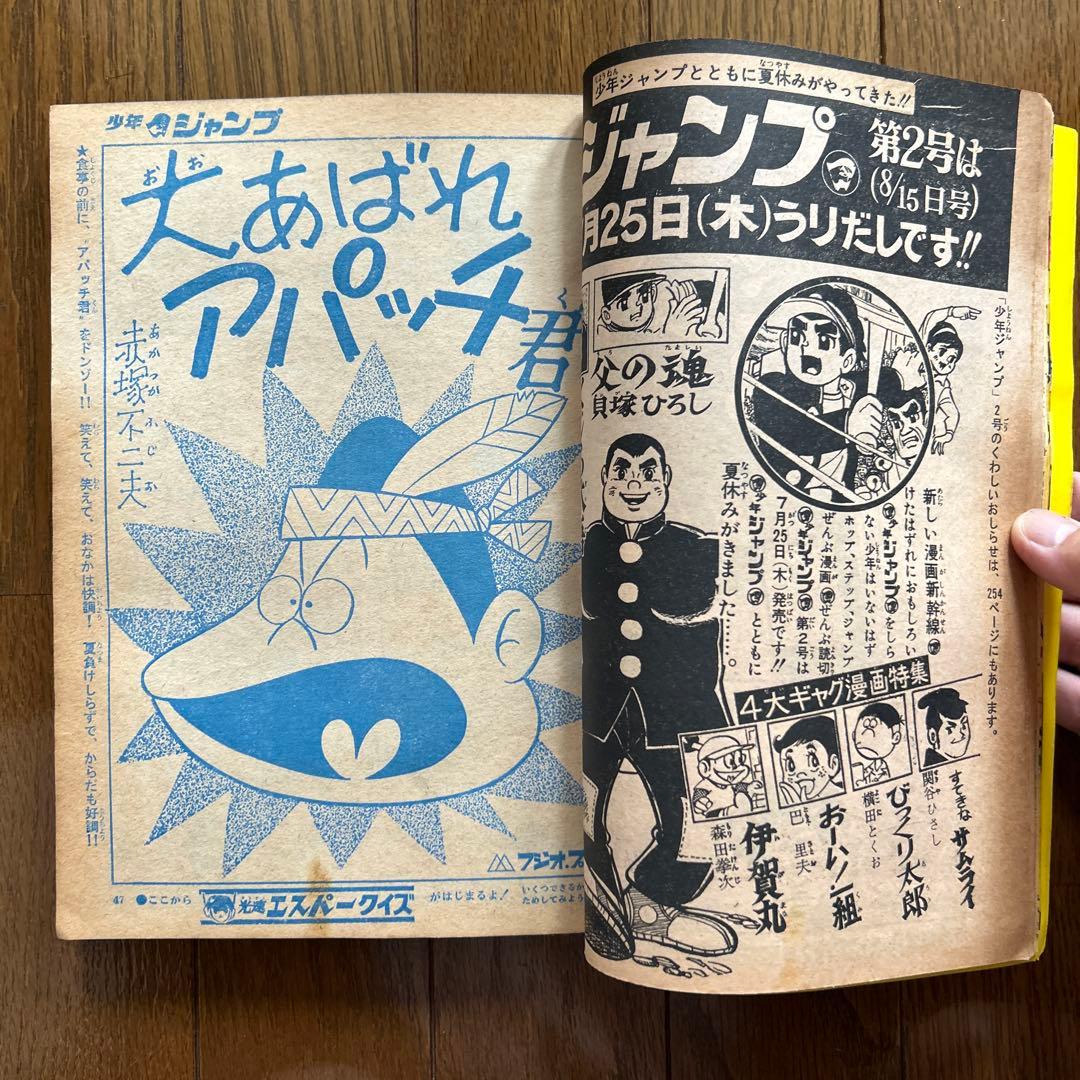 少年ジャンプ
大あばれ
おお
アパッチ君
くん
赤塚不二夫
あかつかふじお
★食事の前に、“アパッチ君”をドンゾー!! 笑えて、笑えて、おなかは快調! 夏負けしらずで、からだも好調!!
フジオ・プ
47 ●ここから
エスパークイズ
がはじまるよ!
いくつできるか
ためしてみよう
少年ジャンプとともに夏休みがやってきた!!
ジャンプ
第2号は
(8/15日号)
月25日(木)うりだしです!!
父の魂
貝塚ひろし
「少年ジャンプ」2号のくわしいおしらせは、254ページにもあります。
新しい漫画新幹線
けたはずれにおもしろい
少年ジャンプをしら
ない少年はいないはず
ホップ、ステップ、ジャンプ
ぜんぶ漫画ぜんぶ読切
少年ジャンプ第2号は
7月25日(木)発売です!!
少年ジャンプとともに
夏休みがきました……。
4大ギャグ漫画特集
すてきなサムライ
関谷ひさし
びっくり太郎
横田とくお
おーい!一組
巴里夫
伊賀丸
森田拳次